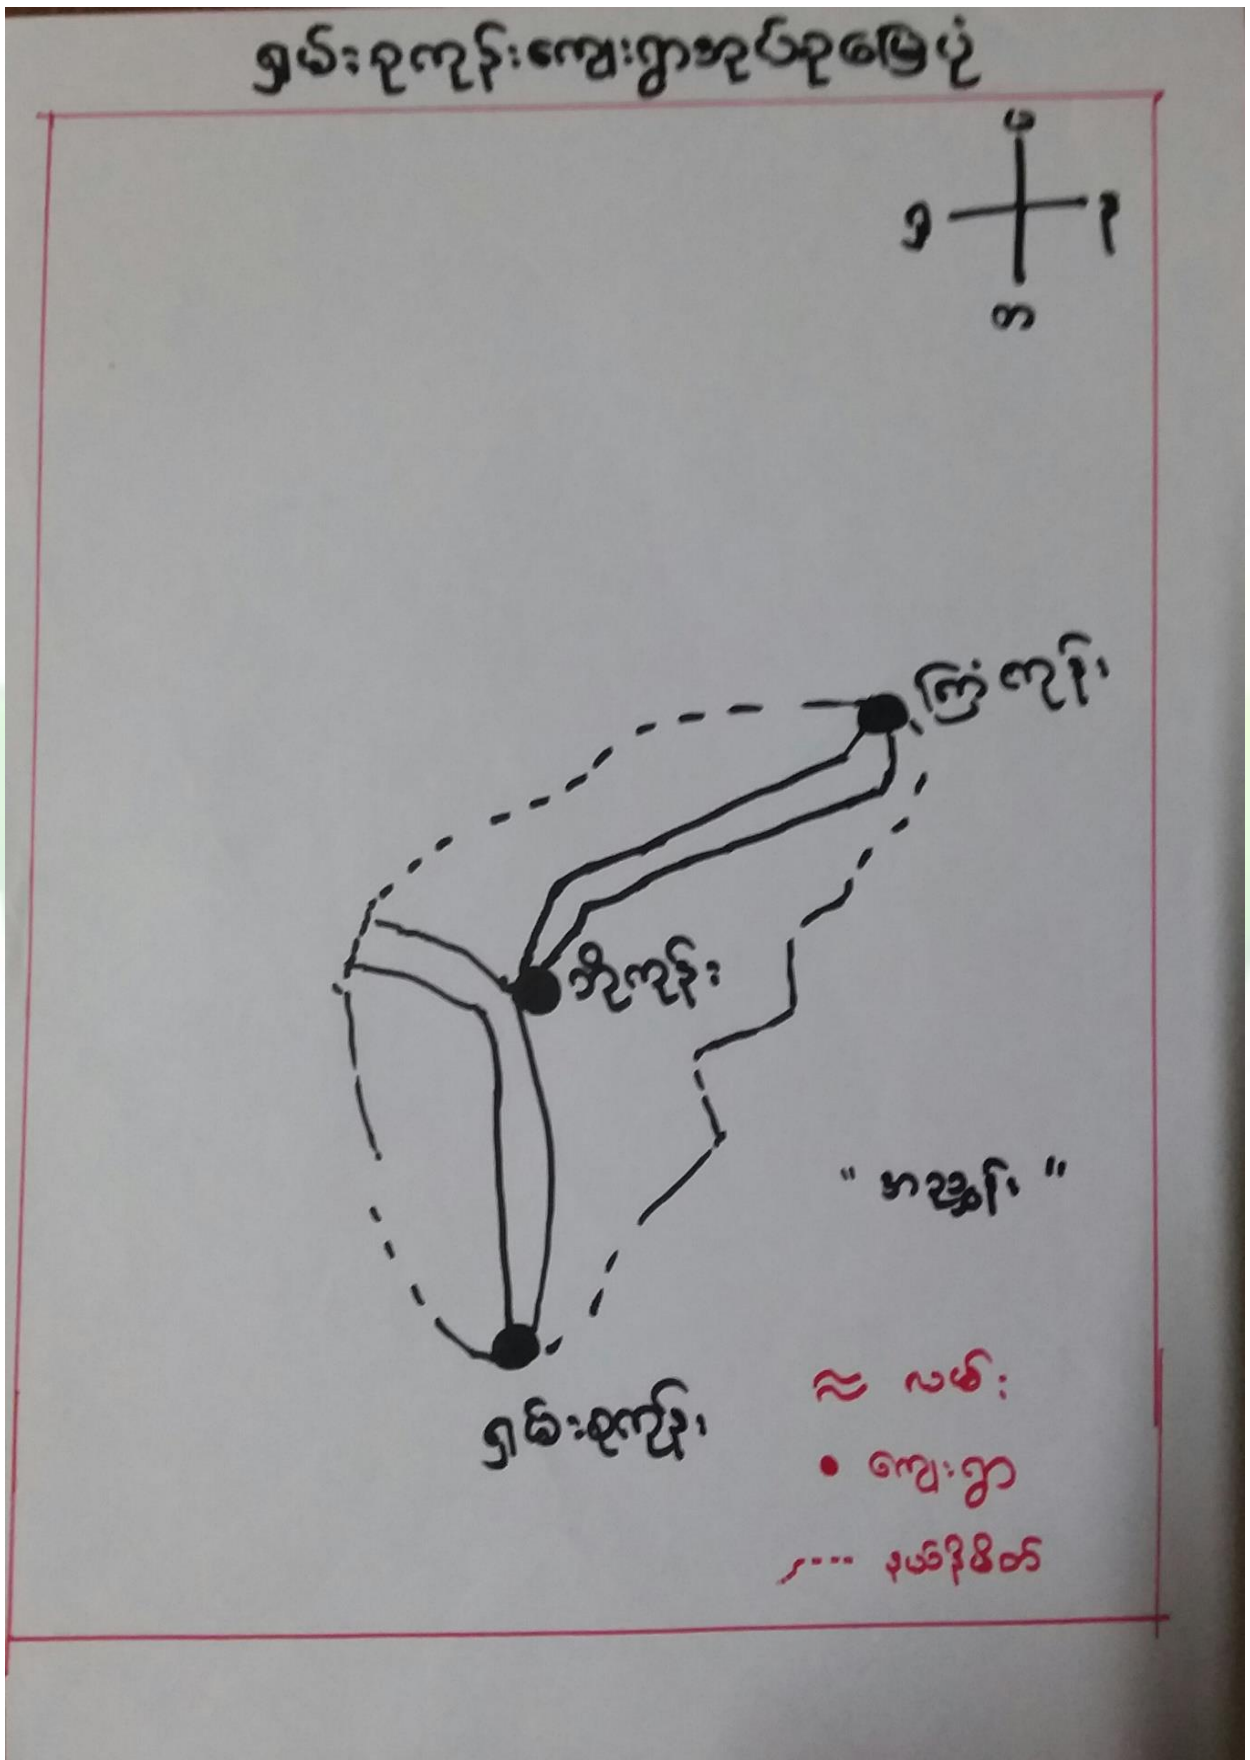 ရှမ်းစုကုန်းကျေးရွာအုပ်စုမြေပုံ
မ
ရှ န
တ
ကြံကုန်း
ဘိုကုန်း
"အညွှန်း"
ရှမ်းစုကုန်း
လမ်း
ကျေးရွာ
နယ်နိမိတ်